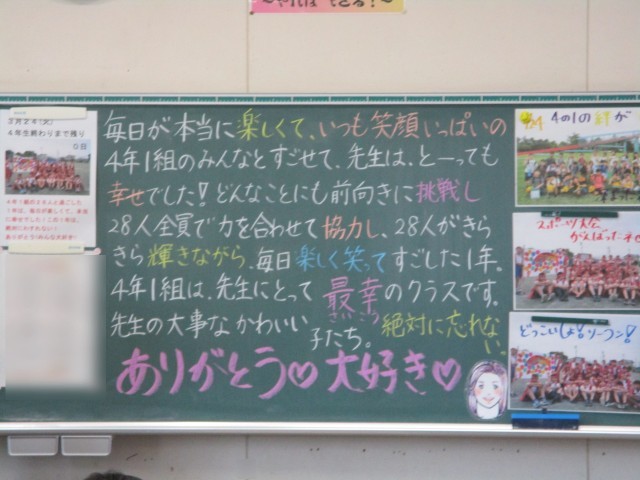 ～やればできる！～
3月24(火)
4年生終わりまで残り
0日
毎日が本当に楽しくて、いつも笑顔いっぱいの
4年1組のみんなとすごせて、先生は、とーっても
幸せでした！どんなことにも前向きに挑戦し
28人全員で力を合わせて協力し、28人がきら
きら輝きながら、毎日楽しく笑ってすごした1年。
4年1組は、先生にとって最幸のクラスです。
さいこう
先生の大事なかわいい子たち。絶対に忘れない。
ありがとう♡大好き♡
4の1の絆が
スポーツ大会
がんばったネ
どっこいしょ！ソーラン！